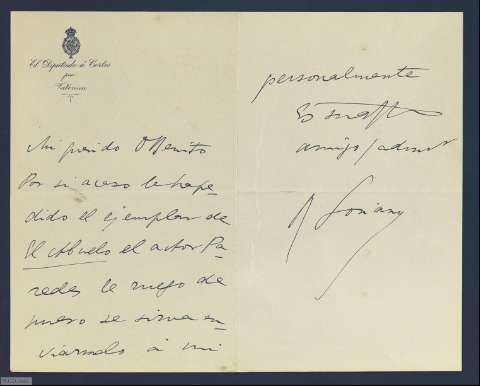 El Diputado á Cortes
por
Valencia
Mi querido D Benito
Por si acaso le ha pe-
dido el ejemplar de
El Abuelo el actor Pa-
redes le ruego de
nuevo se sirva en-
viármelo á mi
personalmente
Es su afft
amigo / admor
R Soriano